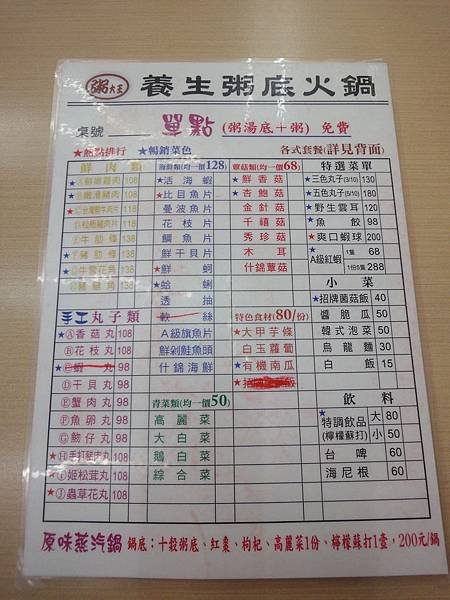 粥大王 養生粥底火鍋
桌號 單點 (粥湯底+粥) 免費
★點排行 ★暢銷菜色 各式套餐(詳見背面)
鮮肉類
118
118
118
138
138
138
手工丸子類
Ⓐ香菇丸 108
Ⓑ花枝丸 108
蝦丸 98
Ⓓ干貝丸 98
Ⓔ蟹肉丸 98
Ⓕ魚卵丸 98
Ⓖ魩仔丸 98
★Ⓗ手打豬肉丸 108
★Ⓘ姬松茸丸 108
★Ⓙ蟲草花丸 108
海鮮類(均一價128)
★活海蝦
★比目魚片
曼波魚片
花枝片
鯛魚片
鮮干貝片
★鮮蚵
★蛤蜊
透抽
軟絲
A級旗魚片
鮮剁鮭魚頭
什錦海鮮
青菜類(均一價50)
高麗菜
大白菜
鵝白菜
綜合菜
蕈菇類(均一價68)
★鮮香菇
★杏鮑菇
金針菇
千禧菇
秀珍菇
木耳
什錦蕈菇
特色食材(80/份)
★大甲芋條
白玉蘿蔔
★有機南瓜
特選菜單
★三色丸子(3/10) 130
★五色丸子(5/10) 180
★野生雲耳 120
★魚餃 90
★爽口蝦球 200
★A級紅蝦 1隻 68
1份5隻 288
小菜
★招牌菌菇飯 40
醬脆瓜 50
韓式泡菜 50
烏龍麵 30
白飯 15
飲料
★特調飲品 大 80
(檸檬蘇打) 小 50
台啤 60
海尼根 60
原味蒸汽鍋 鍋底:十穀粥底、紅棗、枸杞、高麗菜1份、檸檬蘇打1壺,200元/鍋